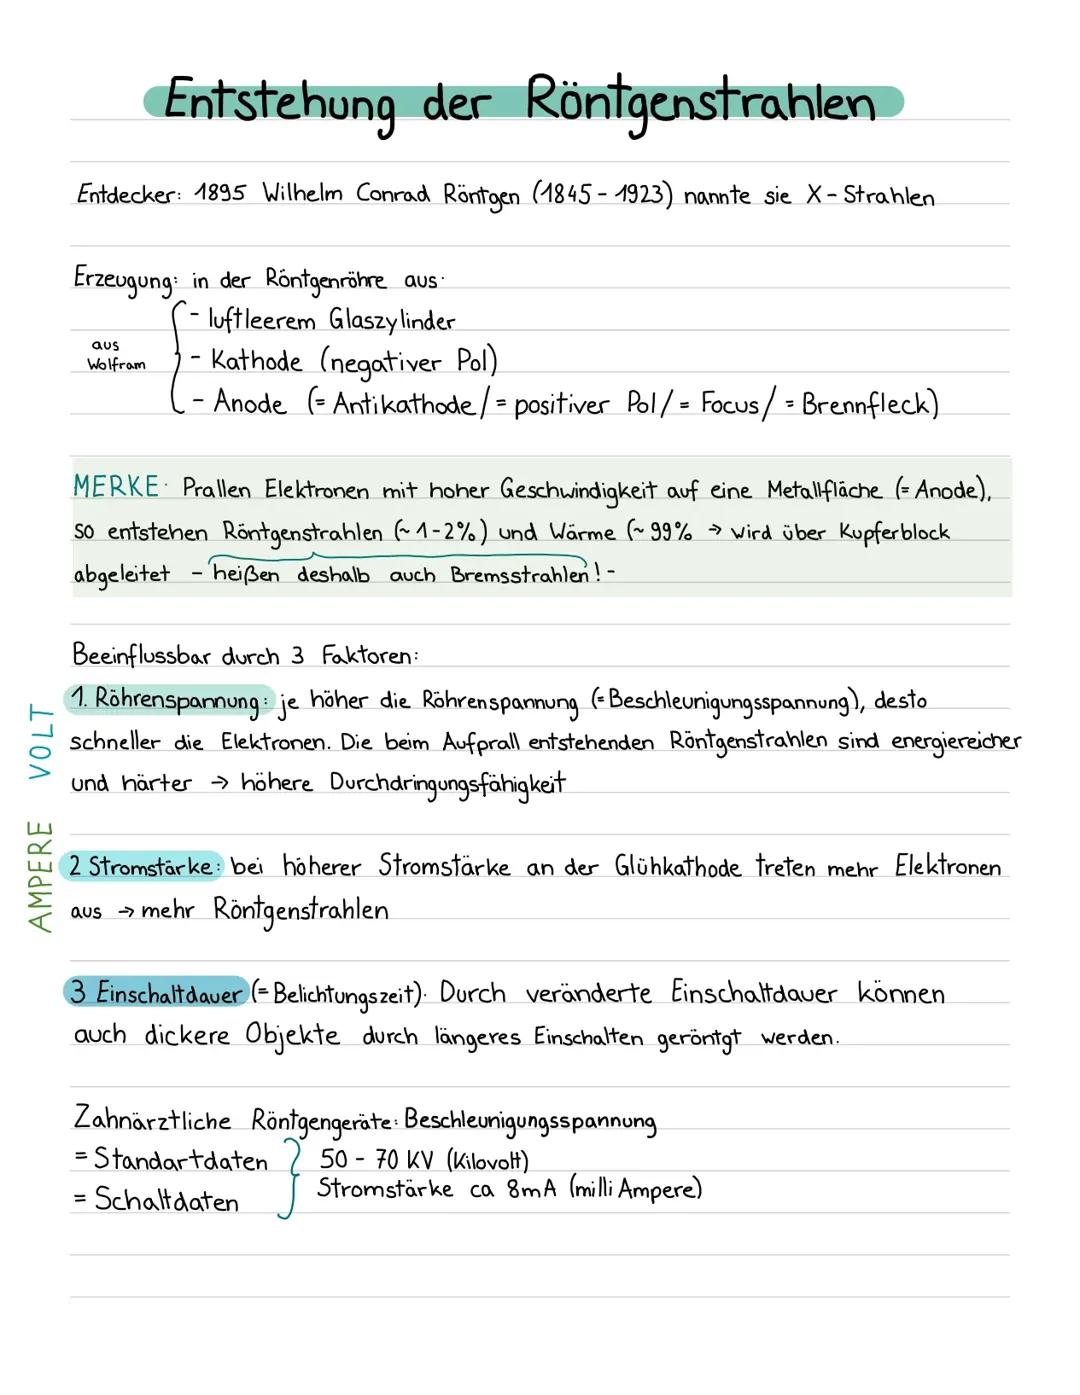 Entstehung der Röntgenstrahlen
Entdecker: 1895 Wilhelm Conrad Röntgen (1845 - 1923) nannte sie X-Strahlen
Erzeugung: in der Röntgenröhre aus:
- luftleerem Glaszylinder
aus
Wolfram
- Kathode (negativer Pol)
- Anode (= Antikathode / = positiver Pol / = Focus / = Brennfleck)
MERKE: Prallen Elektronen mit hoher Geschwindigkeit auf eine Metallfläche (= Anode),
so entstehen Röntgenstrahlen (~ 1-2%) und Wärme (~ 99% → wird über Kupferblock
abgeleitet - heißen deshalb auch Bremsstrahlen! -
Beeinflussbar durch 3 Faktoren:
VOLT
1. Röhrenspannung: je höher die Röhrenspannung (= Beschleunigungsspannung), desto
schneller die Elektronen. Die beim Aufprall entstehenden Röntgenstrahlen sind energiereicher
und härter → höhere Durchdringungsfähigkeit
AMPERE
2 Stromstärke: bei höherer Stromstärke an der Glühkathode treten mehr Elektronen
aus → mehr Röntgenstrahlen
3 Einschaltdauer (= Belichtungszeit): Durch veränderte Einschaltdauer können
auch dickere Objekte durch längeres Einschalten geröntgt werden.
Zahnärztliche Röntgengeräte: Beschleunigungsspannung
= Standartdaten 50 - 70 KV (Kilovolt)
= Schaltdaten Stromstärke ca 8mA (milli Ampere)